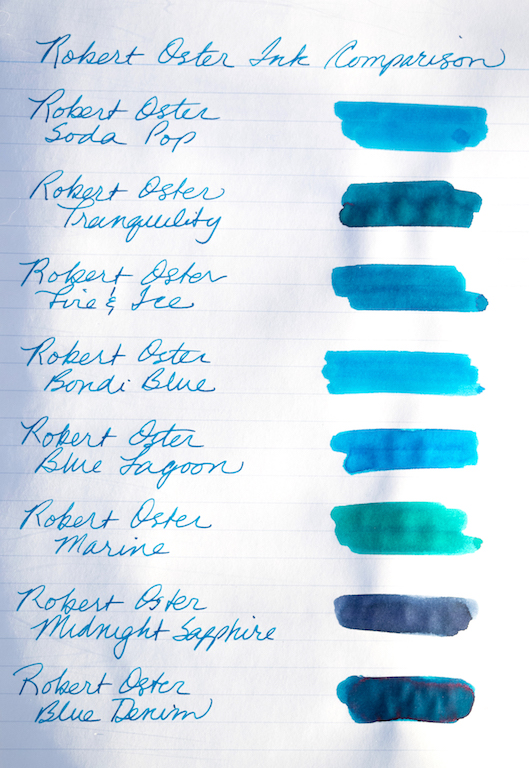 Robert Oster Ink Comparison
Robert Oster
Soda Pop
Robert Oster
Tranquility
Robert Oster
Fire & Ice
Robert Oster
Bondi Blue
Robert Oster
Blue Lagoon
Robert Oster
Marine
Robert Oster
Midnight Sapphire
Robert Oster
Blue Denim